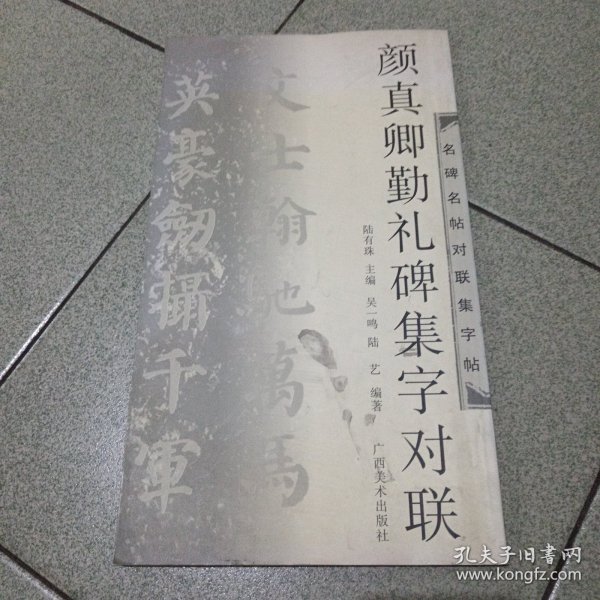 名碑名帖对联集字帖
颜真卿勤礼碑集字对联
陆有珠 主编 吴一鸣 陆艺 编著
广西美术出版社
文士翰驰萬馬
英豪劔攝千軍
孔夫子旧书网
www.kongfz.com